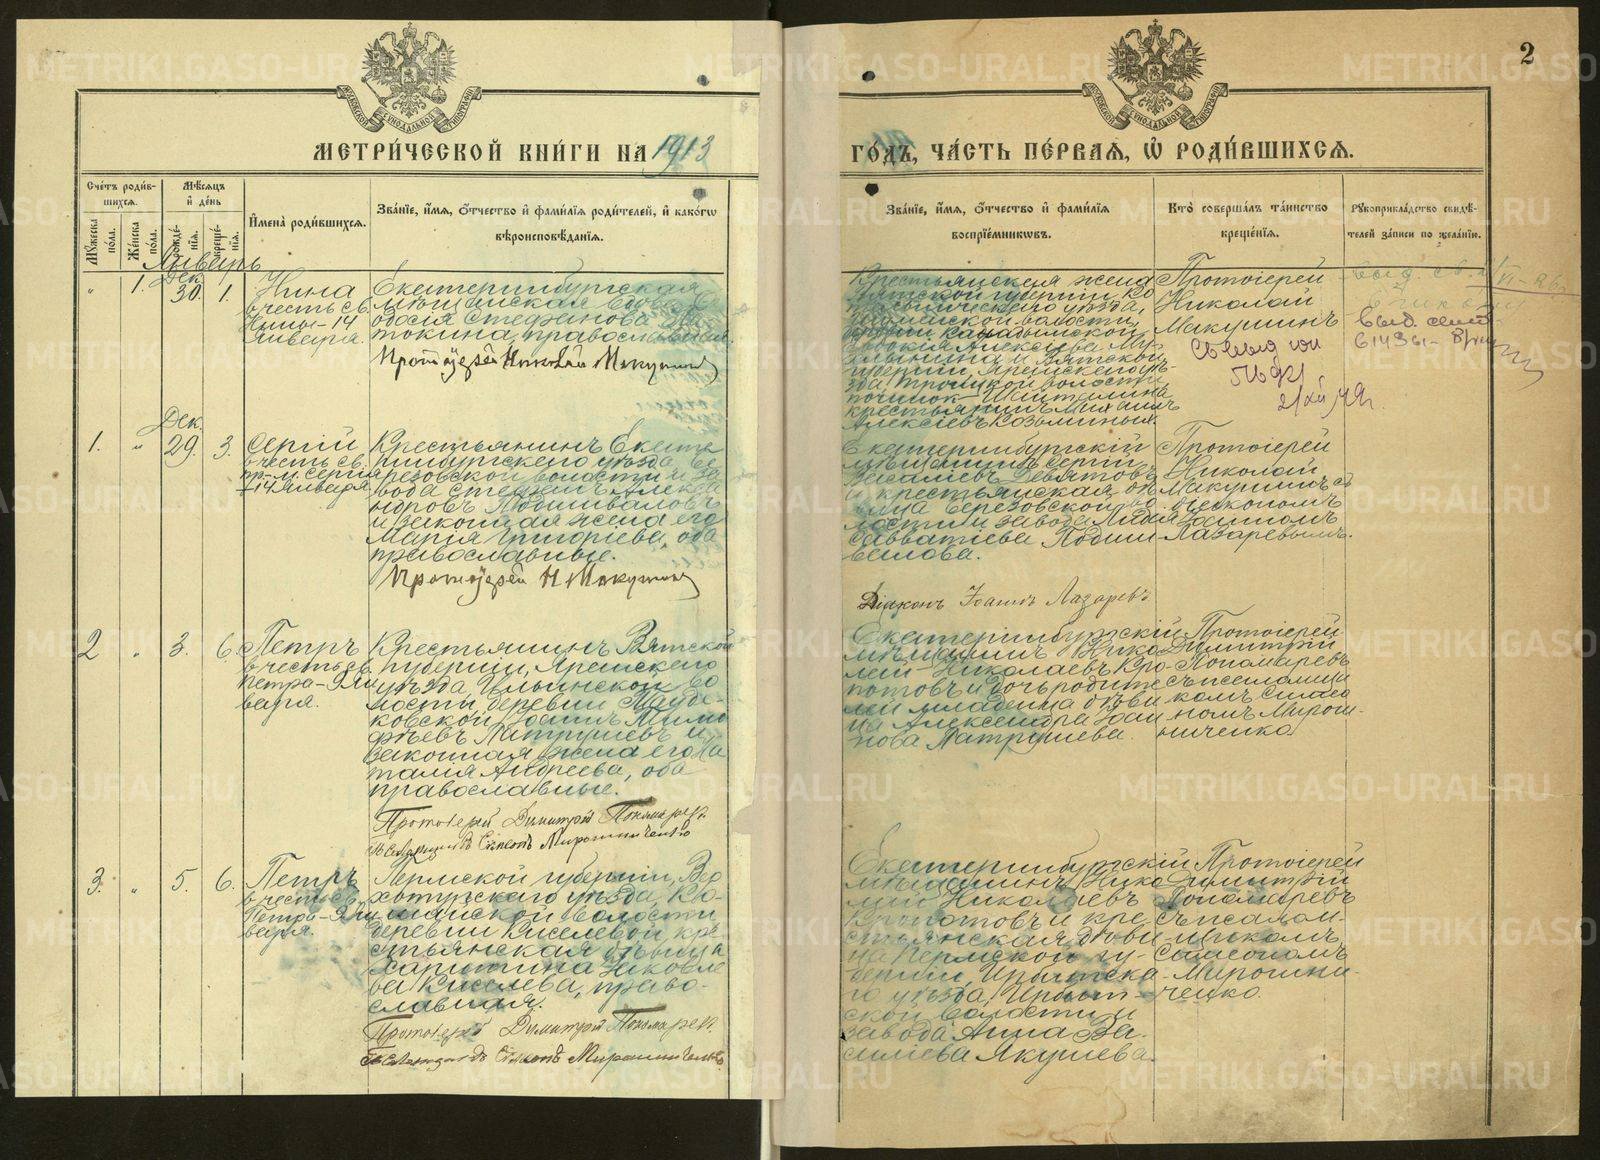 METRIKI.GASO-URAL.RU
2
МЕТРИ́ЧЕСКОЙ КНИ́ГИ НА 1913
ГО́ДЪ, ЧА́СТЬ ПЕ́РВАЯ, Ѿ РОДИ́ВШИХСЯ.
Сче́тъ роди́в-
шихся.
Му́жеска по́ла.
Же́нска по́ла.
Мѣ́сяцъ
и де́нь
рожде́-
нія.
креще́-
нія.
Имена̀ роди́вшихся.
Зва́ніе, и́мя, о́тчество и фами́лія роди́телей, и како́гѡ
вѣроисповѣ́данія.
Зва́ніе, и́мя, о́тчество и фами́лія
воспріе́мникѡвъ.
Кто̀ соверша́лъ та́инство
креще́нія.
Рукоприкла́дство свидѣ́-
телей за́писи по жела́нію.
Январь
"
1.
Дек.
30.
1.
Нина
в честь св.
Нины-14
Января.
Екатеринбургская
мѣщанская вдова
Стефанова
православная.
Протоіерей Николай Макушинъ
Крестьянская жена
Вятской губерніи
уѣзда,
волости,
Алексіева
и Вятской
губерніи, Яренскаго уѣ-
зда, Троицкой волости
починок
крестьянинъ Михаилъ
Алексіевъ Козьминых.
Протоіерей
Николай
Макушинъ
21/XII 49г.
1.
"
Дек.
29.
3.
Сергій
в честь св.
Сергія
-14 Января.
Крестьянинъ Екате-
ринбургскаго уѣзда, Бе-
резовской волости и за-
вода Стефанъ Алексан-
дровъ Подшиваловъ
и законная жена его
Марія Григоріева, оба
православные.
Протоіерей Н Макушинъ
Екатеринбургскій
мѣщанинъ Сергій
Василіевъ Девятовъ
и крестьянская дѣ-
вица Березовской во-
лости и завода Лидія
Савватіева Подши-
валова.
Діаконъ Іоаннъ Лазаревъ
Протоіерей
Николай
Макушинъ съ
діакономъ
Іоанномъ
Лазаревымъ.
2
"
3.
6.
Петръ
в честь св.
Петра-9 Ян-
варя.
Крестьянинъ Вятской
губерніи, Яренскаго
уѣзда, Ильинской во-
лости, деревни
Іоаннъ Тимо-
фѣевъ Патрушевъ и
законная жена его На-
талія Андреева, оба
православные.
Протоіерей Димитрій Пономаревъ
Псаломщикъ Симеонъ Мирошниченко
Екатеринбургскій
мѣщанинъ Нико-
лай Николаевъ Кро-
потовъ и дочь родите-
лей младенца дѣви-
ца Александра Іоан-
нова Патрушева.
Протоіерей
Димитрій
Пономаревъ
съ псаломщи-
комъ Симео-
номъ Мирош-
ниченко
3.
"
5.
6.
Петръ
в честь св.
Петра-9 Ян-
варя.
Пермской губерніи, Вер-
хотурскаго уѣзда,
волости,
деревни Киселевой кре-
стьянская дѣвица
Харитина Яковле-
ва Киселева, право-
славная.
Протоіерей Димитрій Пономаревъ
Псаломщикъ Симеонъ Мирошниченко
Екатеринбургскій
мѣщанинъ Нико-
лай Николаевъ
Кропотовъ и кре-
стьянская дѣви-
ца Пермской гу-
берніи, Ирбитска-
го уѣзда, Ирбит-
ской волости и
завода Анна Ва-
силіева Якушева.
Протоіерей
Димитрій
Пономаревъ
съ псалом-
щикомъ
Симеономъ
Мирошни-
ченко.